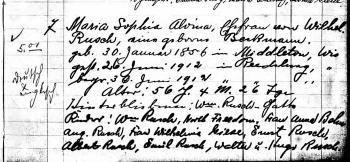 7 Maria Sophia Alvina, Ehefrau von Wilhel.
5.00 Rusch, eine geborne Beckmann.
geb. 30. Januar 1856 in Middleton, Wis
gest. 26. Juni 1912 in Reedsburg, "
begr. 30. Juni 1912 " " "
Deutsch Alter: 56 J. 4 M. 26 Tge.
Englisch Hinterbliebene: Wm. Rusch - Gatte
Kinder: Wm. Rusch, North Freedom, Frau Anna
Aug. Rusch, Frau Wilhelmine Ernst Rusch,
Albert Rusch, Emil Rusch, Walter u. Hugo Rusch